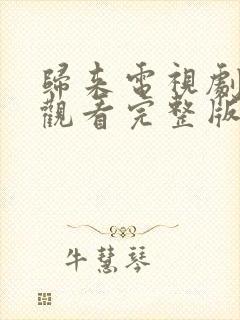 歸來電視劇
觀看完整版
牛慧琴